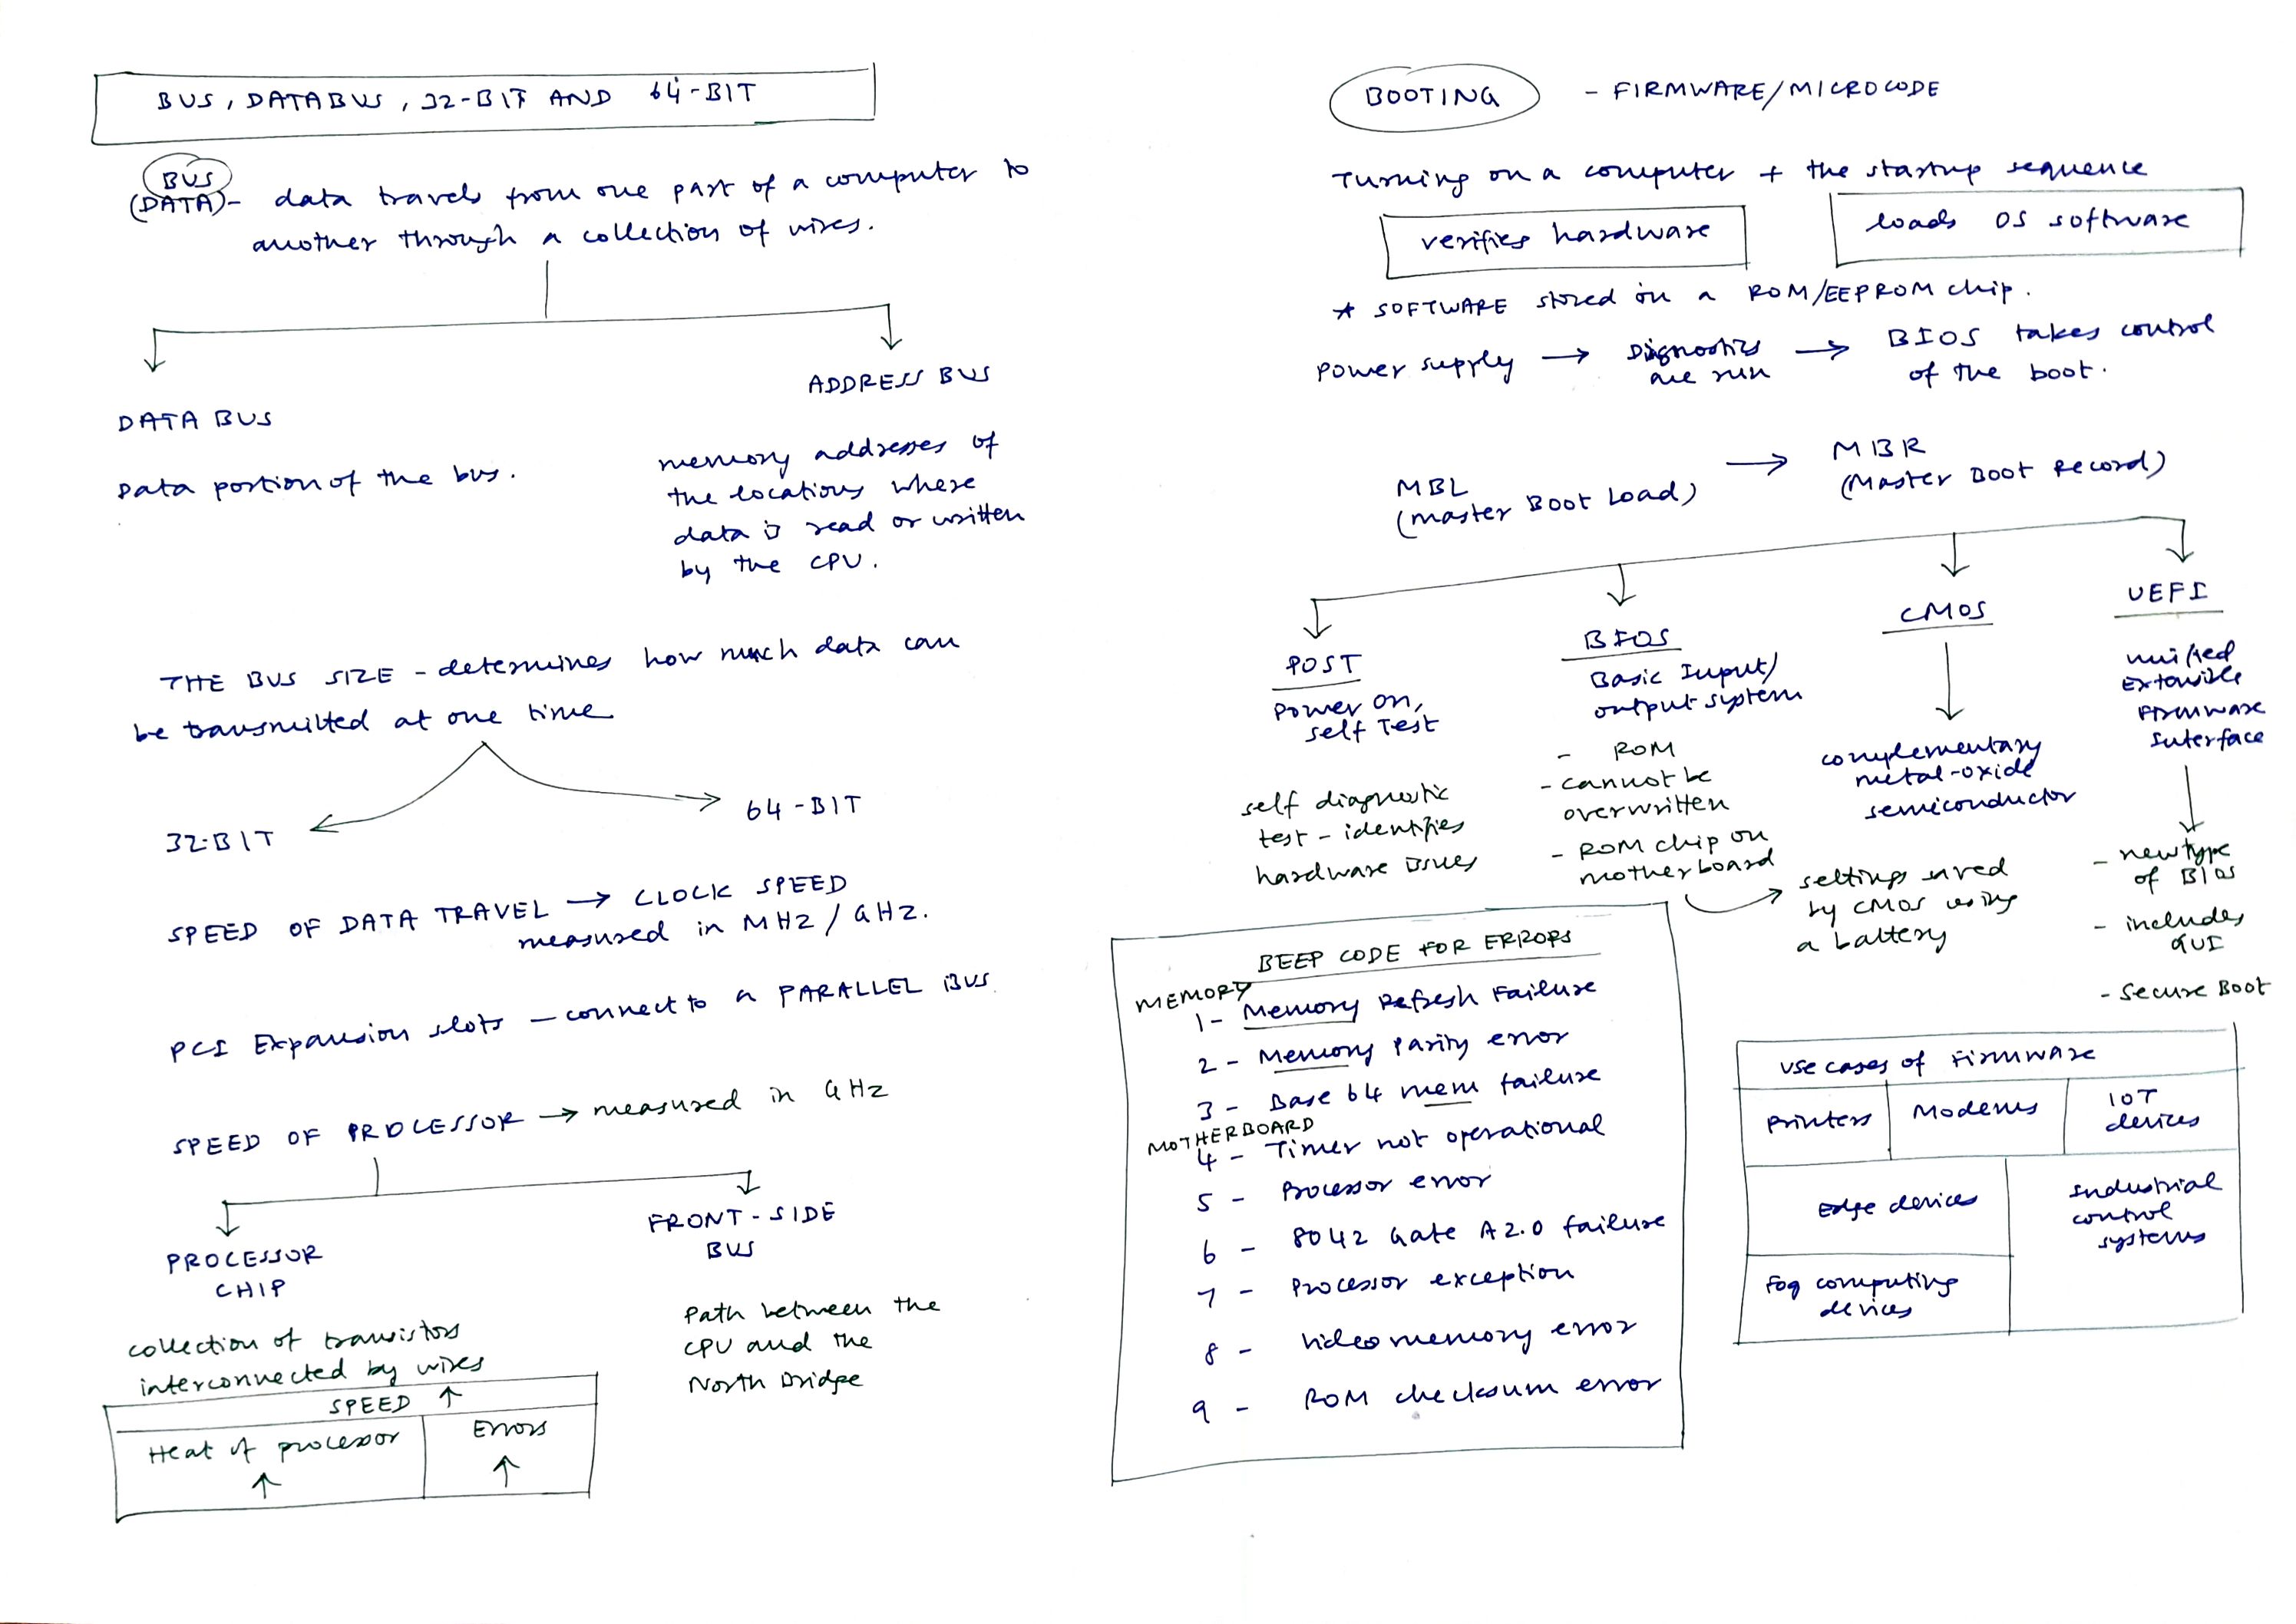 BUS, DATABUS, 32-BIT AND 64-BIT
BUS
(DATA)- data travels from one part of a computer to
another through a collection of wires.
DATA BUS
Data portion of the bus.
ADDRESS BUS
memory addresses of
the locations where
data is read or written
by the CPU.
THE BUS SIZE - determines how much data can
be transmitted at one time
32-BIT
64-BIT
SPEED OF DATA TRAVEL → CLOCK SPEED
measured in MHz / GHz.
PCI Expansion slots - connect to a PARALLEL BUS
SPEED OF PROCESSOR → measured in GHz
PROCESSOR
CHIP
collection of transistors
interconnected by wires
FRONT-SIDE
BUS
Path between the
CPU and the
North Bridge
SPEED ↑
Heat of processor
↑
Errors
↑
BOOTING - FIRMWARE/MICROCODE
Turning on a computer + the startup sequence
verifies hardware
loads OS software
* SOFTWARE stored in a ROM/EEPROM chip.
Power supply → Diagnostics → BIOS takes control
are run
of the boot.
MBL
(Master Boot Load)
→ MBR
(Master Boot Record)
POST
Power on,
self Test
self diagnostic
test - identifies
hardware issues
BIOS
Basic Input/
output system
- ROM
- cannot be
overwritten
- ROM chip on
motherboard
CMOS
complementary
metal-oxide
semiconductor
settings saved
by CMOS using
a battery
UEFI
unified
Extensible
Firmware
Interface
- new type
of BIOS
- includes
GUI
- Secure Boot
BEEP CODE FOR ERRORS
MEMORY
1 - Memory Refresh Failure
2 - Memory Parity error
3 - Base 64 mem failure
MOTHERBOARD
4 - Timer not operational
5 - Processor error
6 - 8042 Gate A2.0 failure
7 - Processor exception
8 - Video memory error
9 - ROM checksum error
Use cases of Firmware
Printers
Modems
IOT
devices
Edge devices
Industrial
control
systems
Fog computing
devices